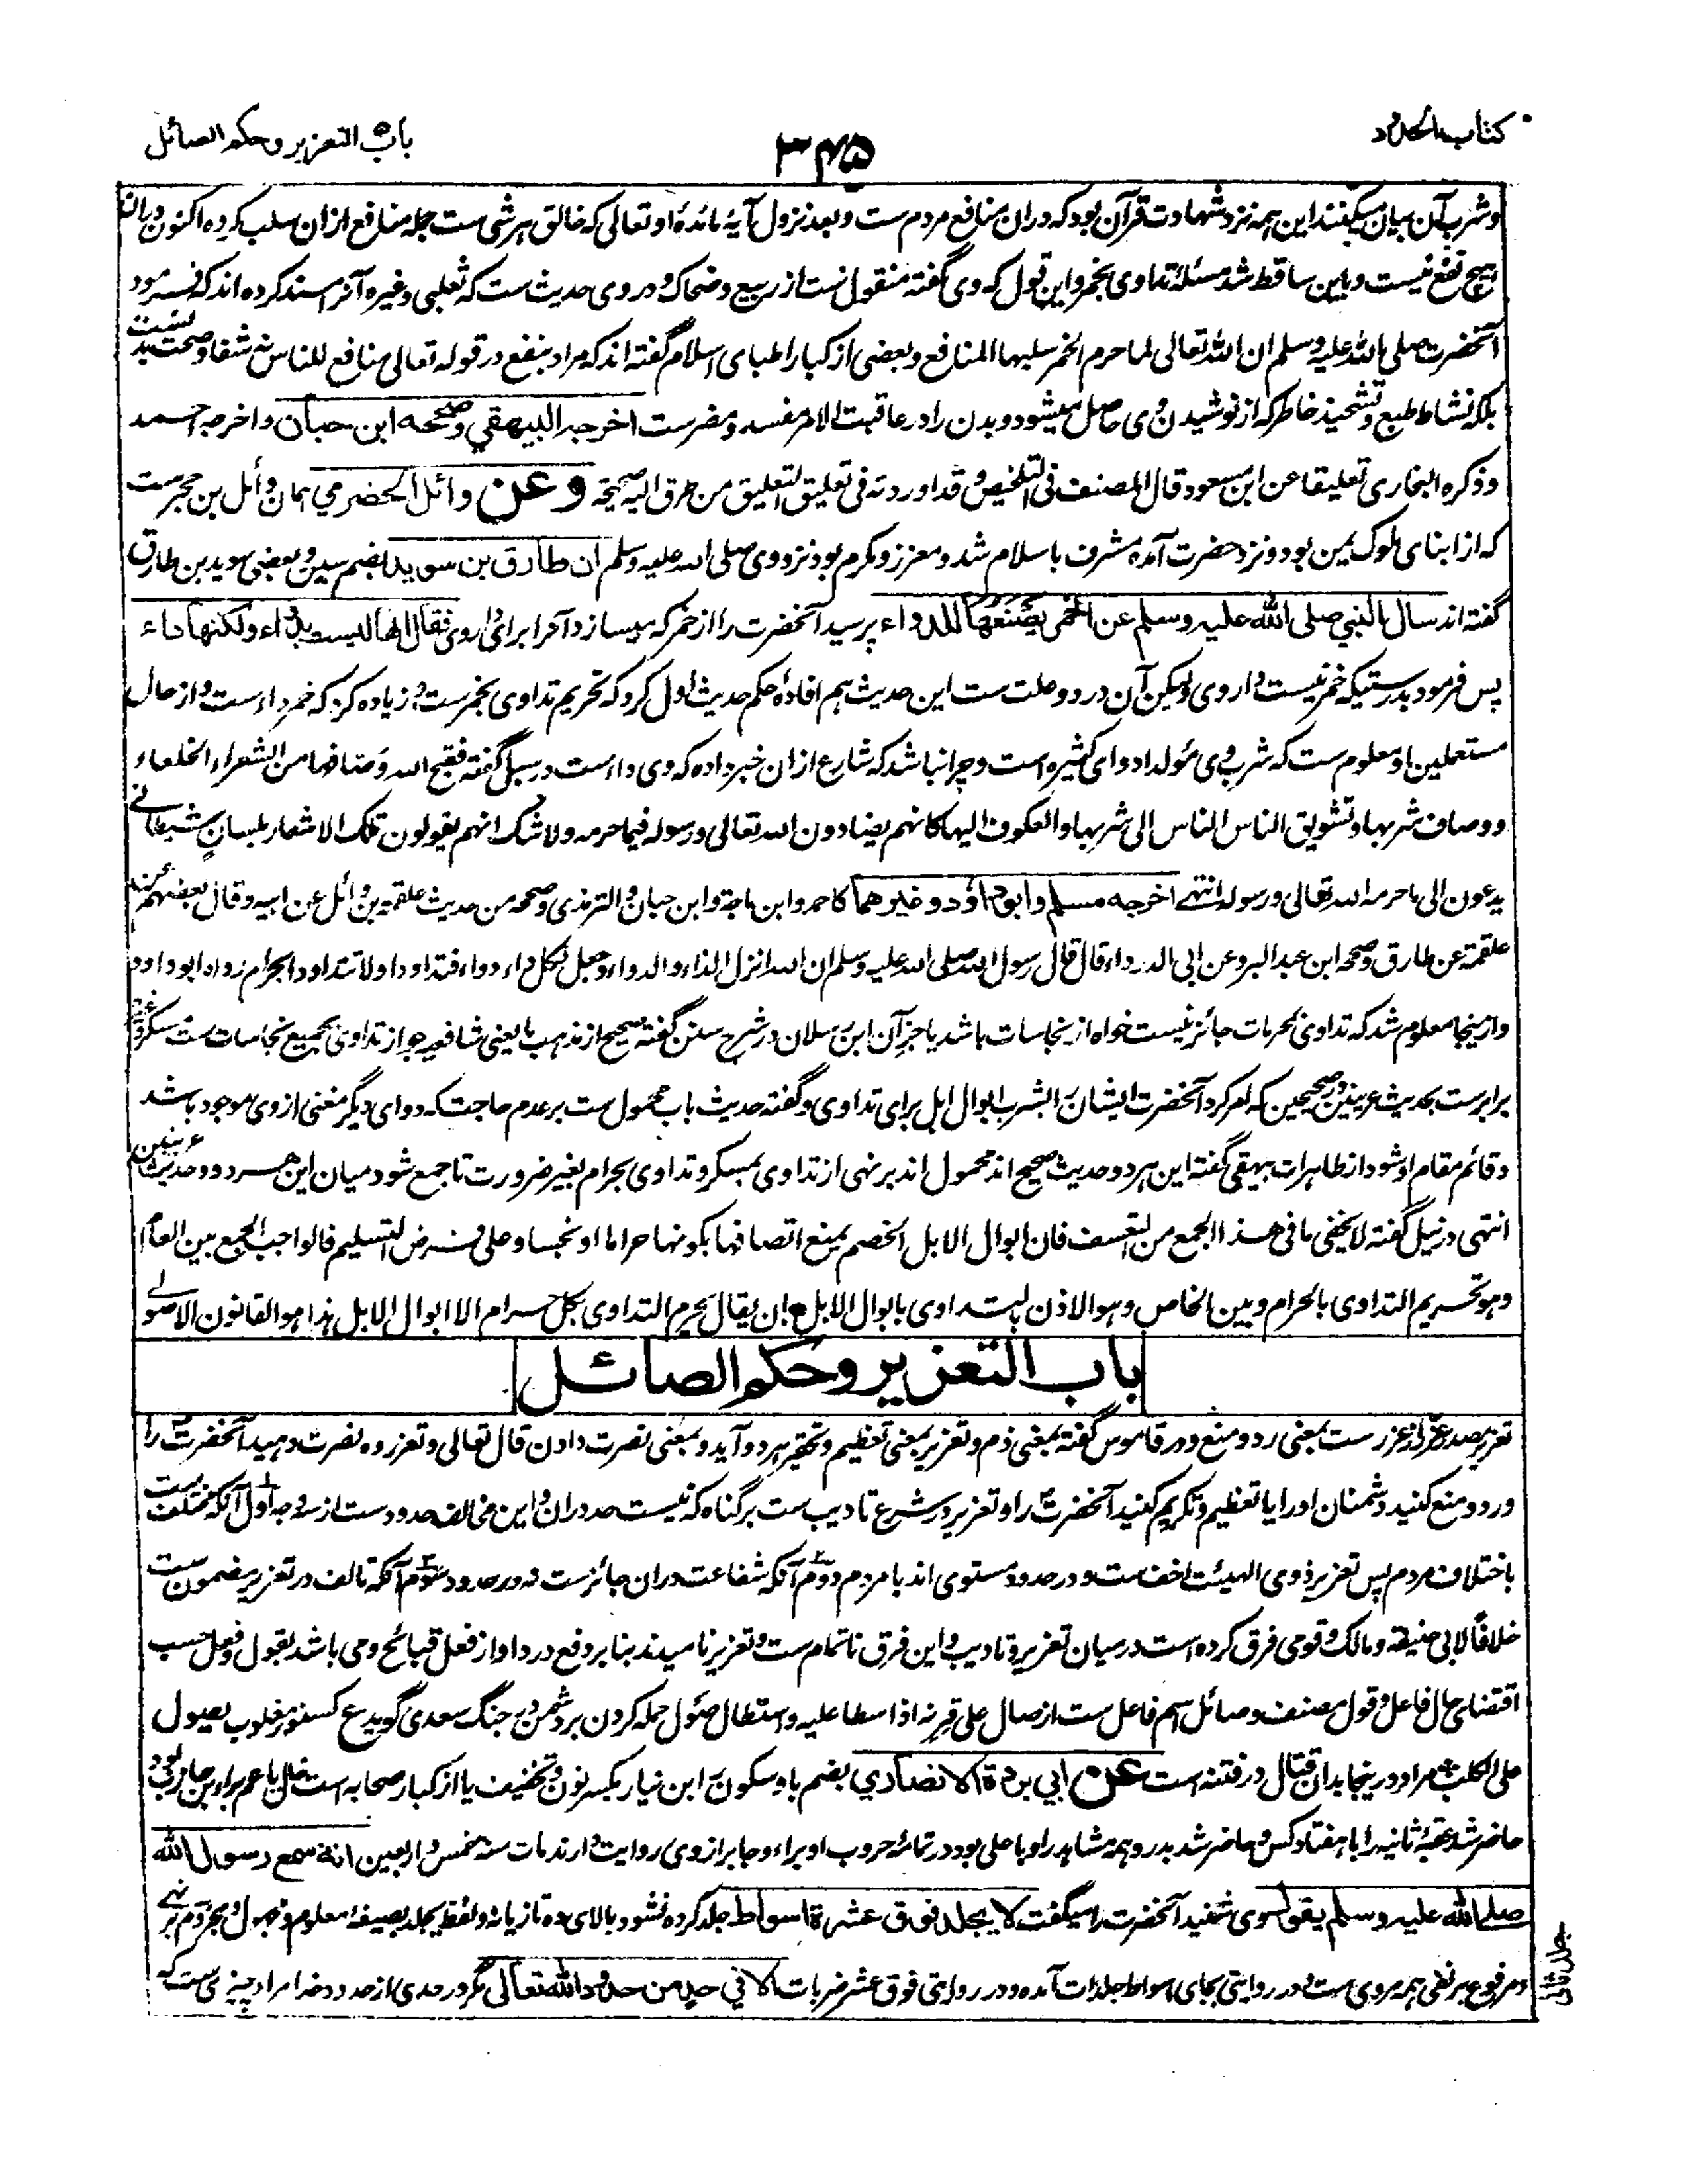 کتاب الحدود
۳۴۵
باب التعزیر وحکم الصائل
و شرب آن بیان میکنند این همه نزد شهادت قرآن بود که دران منافع مردم ست و بعد نزول آیهٔ مائده او تعالی که خالق هر شی ست جمله منافع ازان سلب کرده اکنون دران
هیچ نفع نیست و باین ساقط شد مسئلهٔ تداوی بخمر و این قول که وی گفته منقول ست از ربیع و ضحاک و در وی حدیث ست که ثعلبی و غیره آنرا مسند کرده اند که فرمود
آنحضرت صلی الله علیه وسلم ان الله تعالی لما حرم الخمر سلبها المنافع و بعضی از کبار اطبای اسلام گفته اند که مراد بنفع در قوله تعالی منافع للناس نه شفا و صحت بدنست
بلکه نشاط طبع و تشحیذ خاطر که از نوشیدن وی حاصل میشود و بدن را در عاقبت الامر مفسد و مضر ست اخرجه البیهقي وصححه ابن حبان و اخرجه احمد
و ذکره البخاری تعلیقا عن ابن مسعود قال المصنف فی التلخیص و قد اوردته فی تعلیق التعلیق من طرق الیه صحیحة وعن وائل الحضرمي همان وائل بن حجر ست
که از ابنای ملوک یمن بود و نزد حضرت آمده مشرف باسلام شد و معزز و مکرم بود نزد وی صلی الله علیه وسلم ان طارق بن سوید بضم سین و بعضی سوید بن طارق
گفته اند سال النبي صلی الله علیه وسلم عن الخمر یصنعها للدواء پرسید آنحضرت را از خمر که میسازد آنرا برای داروی فقال انها لیست بدواء ولکنها داء
پس فرمود بدرستیکه خمر نیست داروی ولیکن آن درد و علت ست این حدیث هم افادهٔ حکم حدیث اول کرد که تحریم تداوی بخمرست و زیاده کرد که خمر داء ست و از حال
مستعملین او معلوم ست که شرب وی مولد ادوای کثیره است و چرا نباشد که شارع ازان خبر داده که وی داء است در سبل گفته فقبح الله وصافها من الشعراء الخلعاء
ووصاف شربها وتشویق الناس الناس الی شربها والعکوف الیها کانهم یضادون الله تعالی ورسوله فیما حرمه ولا شک انهم یقولون تلک الاشعار بلسان شیطانی
یدعون الی ما حرمه الله تعالی ورسوله انتهی اخرجه مسلم وابوداؤد وغیرهما کاحمد وابن ماجة وابن حبان والترمذی وصححه من حدیث علقمة بن وائل عن ابیه وقال بعضهم عن
علقمة عن طارق وصححه ابن عبد البر وعن ابی الدرداء قال قال رسول الله صلی الله علیه وسلم ان الله انزل الداء والدواء وجعل لکل داء دواء فتداووا ولا تتداووا بالحرام رواه ابوداود
و ازینجا معلوم شد که تداوی بمحرمات جائز نیست خواه از نجاسات باشد یا جز آن ابن رسلان در شرح سنن گفته صحیح از مذهب ما یعنی شافعیه جواز تداوی بجمیع نجاسات ست سوای مسکر
برابر ست بحدیث عرینیین در صحیحین که امر کرد آنحضرت ایشان را بشرب ابوال ابل برای تداوی و گفته حدیث باب محمول ست بر عدم حاجت که دوای دیگر مغنی ازوی موجود باشد
و قائم مقام او شود از طاهرات بیهقی گفته این هر دو حدیث صحیح اند محمول اند بر نهی از تداوی بمسکر و تداوی بحرام بغیر ضرورت تا جمع شود میان این هردو و حدیث عرینیین
انتهی در نیل گفته لا یخفی ما فی هذا الجمع من التعسف فان ابوال الابل الخصم یمنع اتصافها بکونها حراما او نجسا وعلی فرض التسلیم فالواجب الجمع بین العام
وهو تحریم التداوی بالحرام وبین الخاص وهو الاذن بالتداوی بابوال الابل بان یقال یحرم التداوی بکل حرام الا ابوال الابل هذا هو القانون الاصولی
باب التعزیر وحکم الصائل
تعزیر مصدر عزر از عزر ست بمعنی رد و منع و در قاموس گفته بمعنی ذم و تعزیر بمعنی تعظیم و تحقیر هر دو آید و بمعنی نصرت دادن قال تعالی وتعزروه نصرت دهید آنحضرت را
و رد و منع کنید دشمنان او را یا تعظیم و تکریم کنید آنحضرت را و تعزیر در شرع تادیب ست بر گناه که نیست حد دران و این مخالف حدود ست از سه وجه اول آنکه مختلف ست
باختلاف مردم پس تعزیر ذوی الهیئت اخف ست و در حدود مستوی اند با مردم دوم آنکه شفاعت دران جائز ست نه در حدود سوم آنکه تالف در تعزیر مضمون ست
خلافاً لابی حنیفة و مالک و قومی فرق کرده است درمیان تعزیر و تادیب و این فرق ناتمام ست و تعزیر نامیدند بنا بر دفع و رد او از فعل قبائح و می باشد بقول و فعل حسب
اقتضای حال فاعل و قول مصنف و صائل اسم فاعل ست از صال علی قرنه اذا سطا علیه واستطال صول حمله کردن بر دشمن در جنگ سعدی گوید ع کسنور مغلوب یصول
علی الکلب مراد درینجا بدان قتال در فتنه است عن ابي بردة الانصاري بضم با و سکون را ابن نیار بکسر نون و تخفیف یا از کبار صحابه است خال یا عم براء بن عازب بود
حاضر شد عقبهٔ ثانیه را با هفتاد کس و حاضر شد بدر و همه مشاهد را و با علی بود در تمامه حروب او براء و جابر ازوی روایت دارند مات سنه خمس و اربعین انه سمع رسول الله
صلی الله علیه وسلم یقول وی شنید آنحضرت را میگفت لا یجلد فوق عشرة اسواط جلد کرده نشود بالای ده تازیانه و لفظ یجلد بصیغهٔ معلوم و مجهول و مجزوم بر نهی
و مرفوع بر نفی همه مروی ست و در روایتی بجای اسواط جلدات آمده و در روایتی فوق عشر ضربات الا في حد من حدود الله تعالی مگر در حدی از حدود خدا مراد چیزی ست که
جلد ثانی